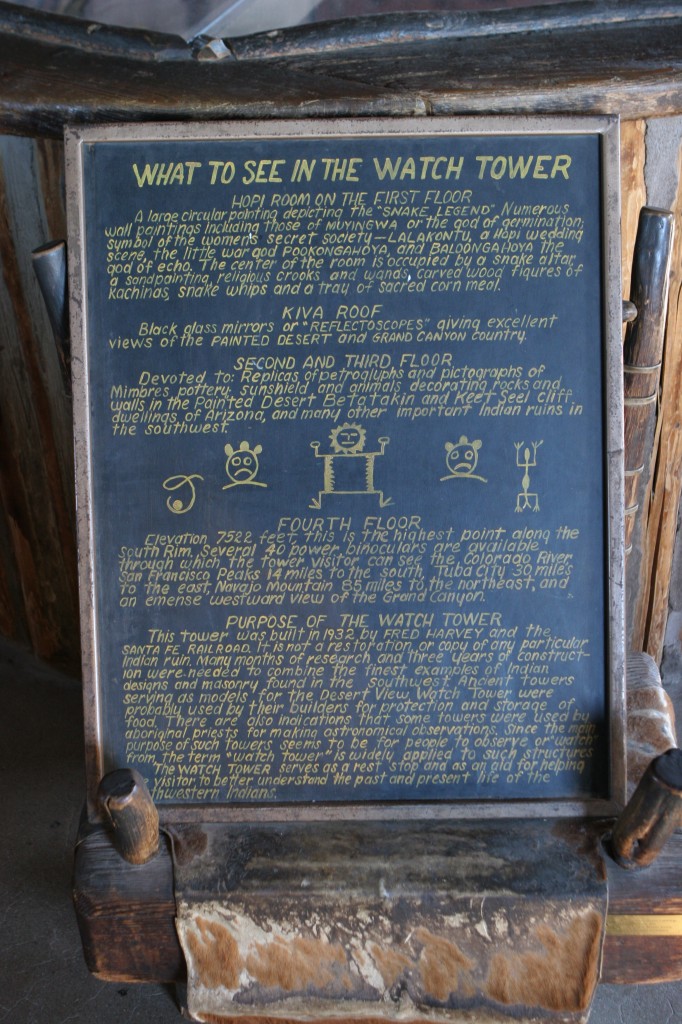 WHAT TO SEE IN THE WATCH TOWER
HOPI ROOM ON THE FIRST FLOOR
A large circular painting depicting the "SNAKE LEGEND" Numerous
wall paintings including those of MUYINGWA or the god of germination;
symbol of the women's secret society—LALAKONTU, a Hopi wedding
scene, the little war god POOKONGAHOYA, and BALOONGAHOYA the
god of echo. The center of the room is occupied by a snake altar,
a sandpainting, religious crooks and wands, carved wood figures of
kachinas, snake whips and a tray of sacred corn meal.
KIVA ROOF
Black glass mirrors or "REFLECTOSCOPES" giving excellent
views of the PAINTED DESERT and GRAND CANYON country.
SECOND AND THIRD FLOOR
Devoted to: Replicas of petroglyphs and pictographs of
Mimbres pottery, sunshield and animals decorating rocks and
walls in the Painted Desert Betatakin and Keet Seel cliff
dwellings of Arizona, and many other important Indian ruins in
the southwest.
FOURTH FLOOR
Elevation 7522 feet, this is the highest point along the
South Rim. Several 40 power binoculars are available
through which the tower visitor can see the Colorado River,
San Francisco Peaks 14 miles to the south, Tuba City 30 miles
to the east, Navajo Mountain 85 miles to the northeast, and
an emense westward view of the Grand Canyon.
PURPOSE OF THE WATCH TOWER
This tower was built in 1932 by FRED HARVEY and the
SANTA FE RAILROAD. It is not a restoration, or copy of any particular
Indian ruin. Many months of research and three years of construct-
ion were needed to combine the finest examples of Indian
designs and masonry found in the Southwest. Ancient towers
serving as models for the Desert View Watch Tower were
probably used by their builders for protection and storage of
food. There are also indications that some towers were used by
aboriginal priests for making astronomical observations. Since the main
purpose of such towers seems to be for people to observe or watch
from, the term "watch tower" is widely applied to such structures
The WATCH TOWER serves as a rest stop and as an aid for helping
visitor to better understand the past and present life of the
thwestern Indians.